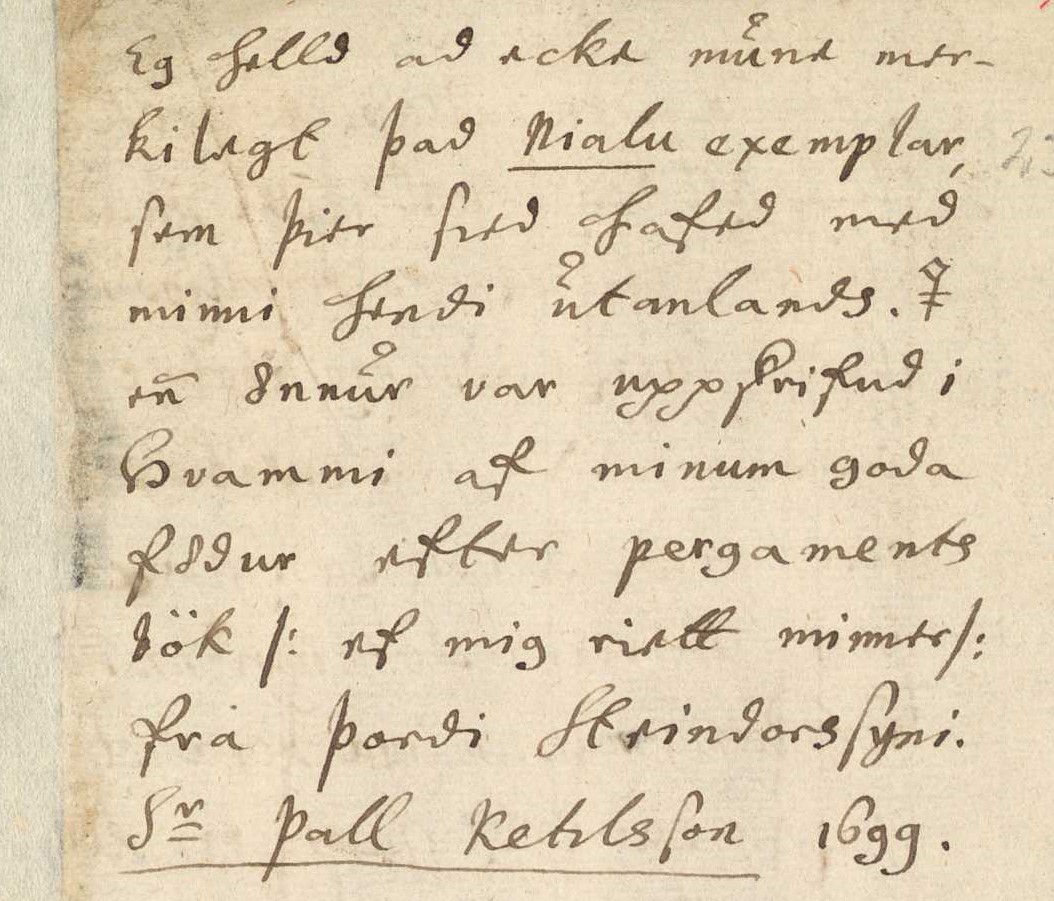 Eg helld ad ecke můne mer-
kilegt þad Nialu exemplar,
sem þier sied hafed med
minni hendi ůtanlands. ☿
en̄ ỏnnůr var uppskrifud i
Hvammi af minum goda
fỏdur efter pergaments
bök /: ef mig riett minner/:
fra Þordi Steindorssyni.
Sr Páll Ketilsson 1699.